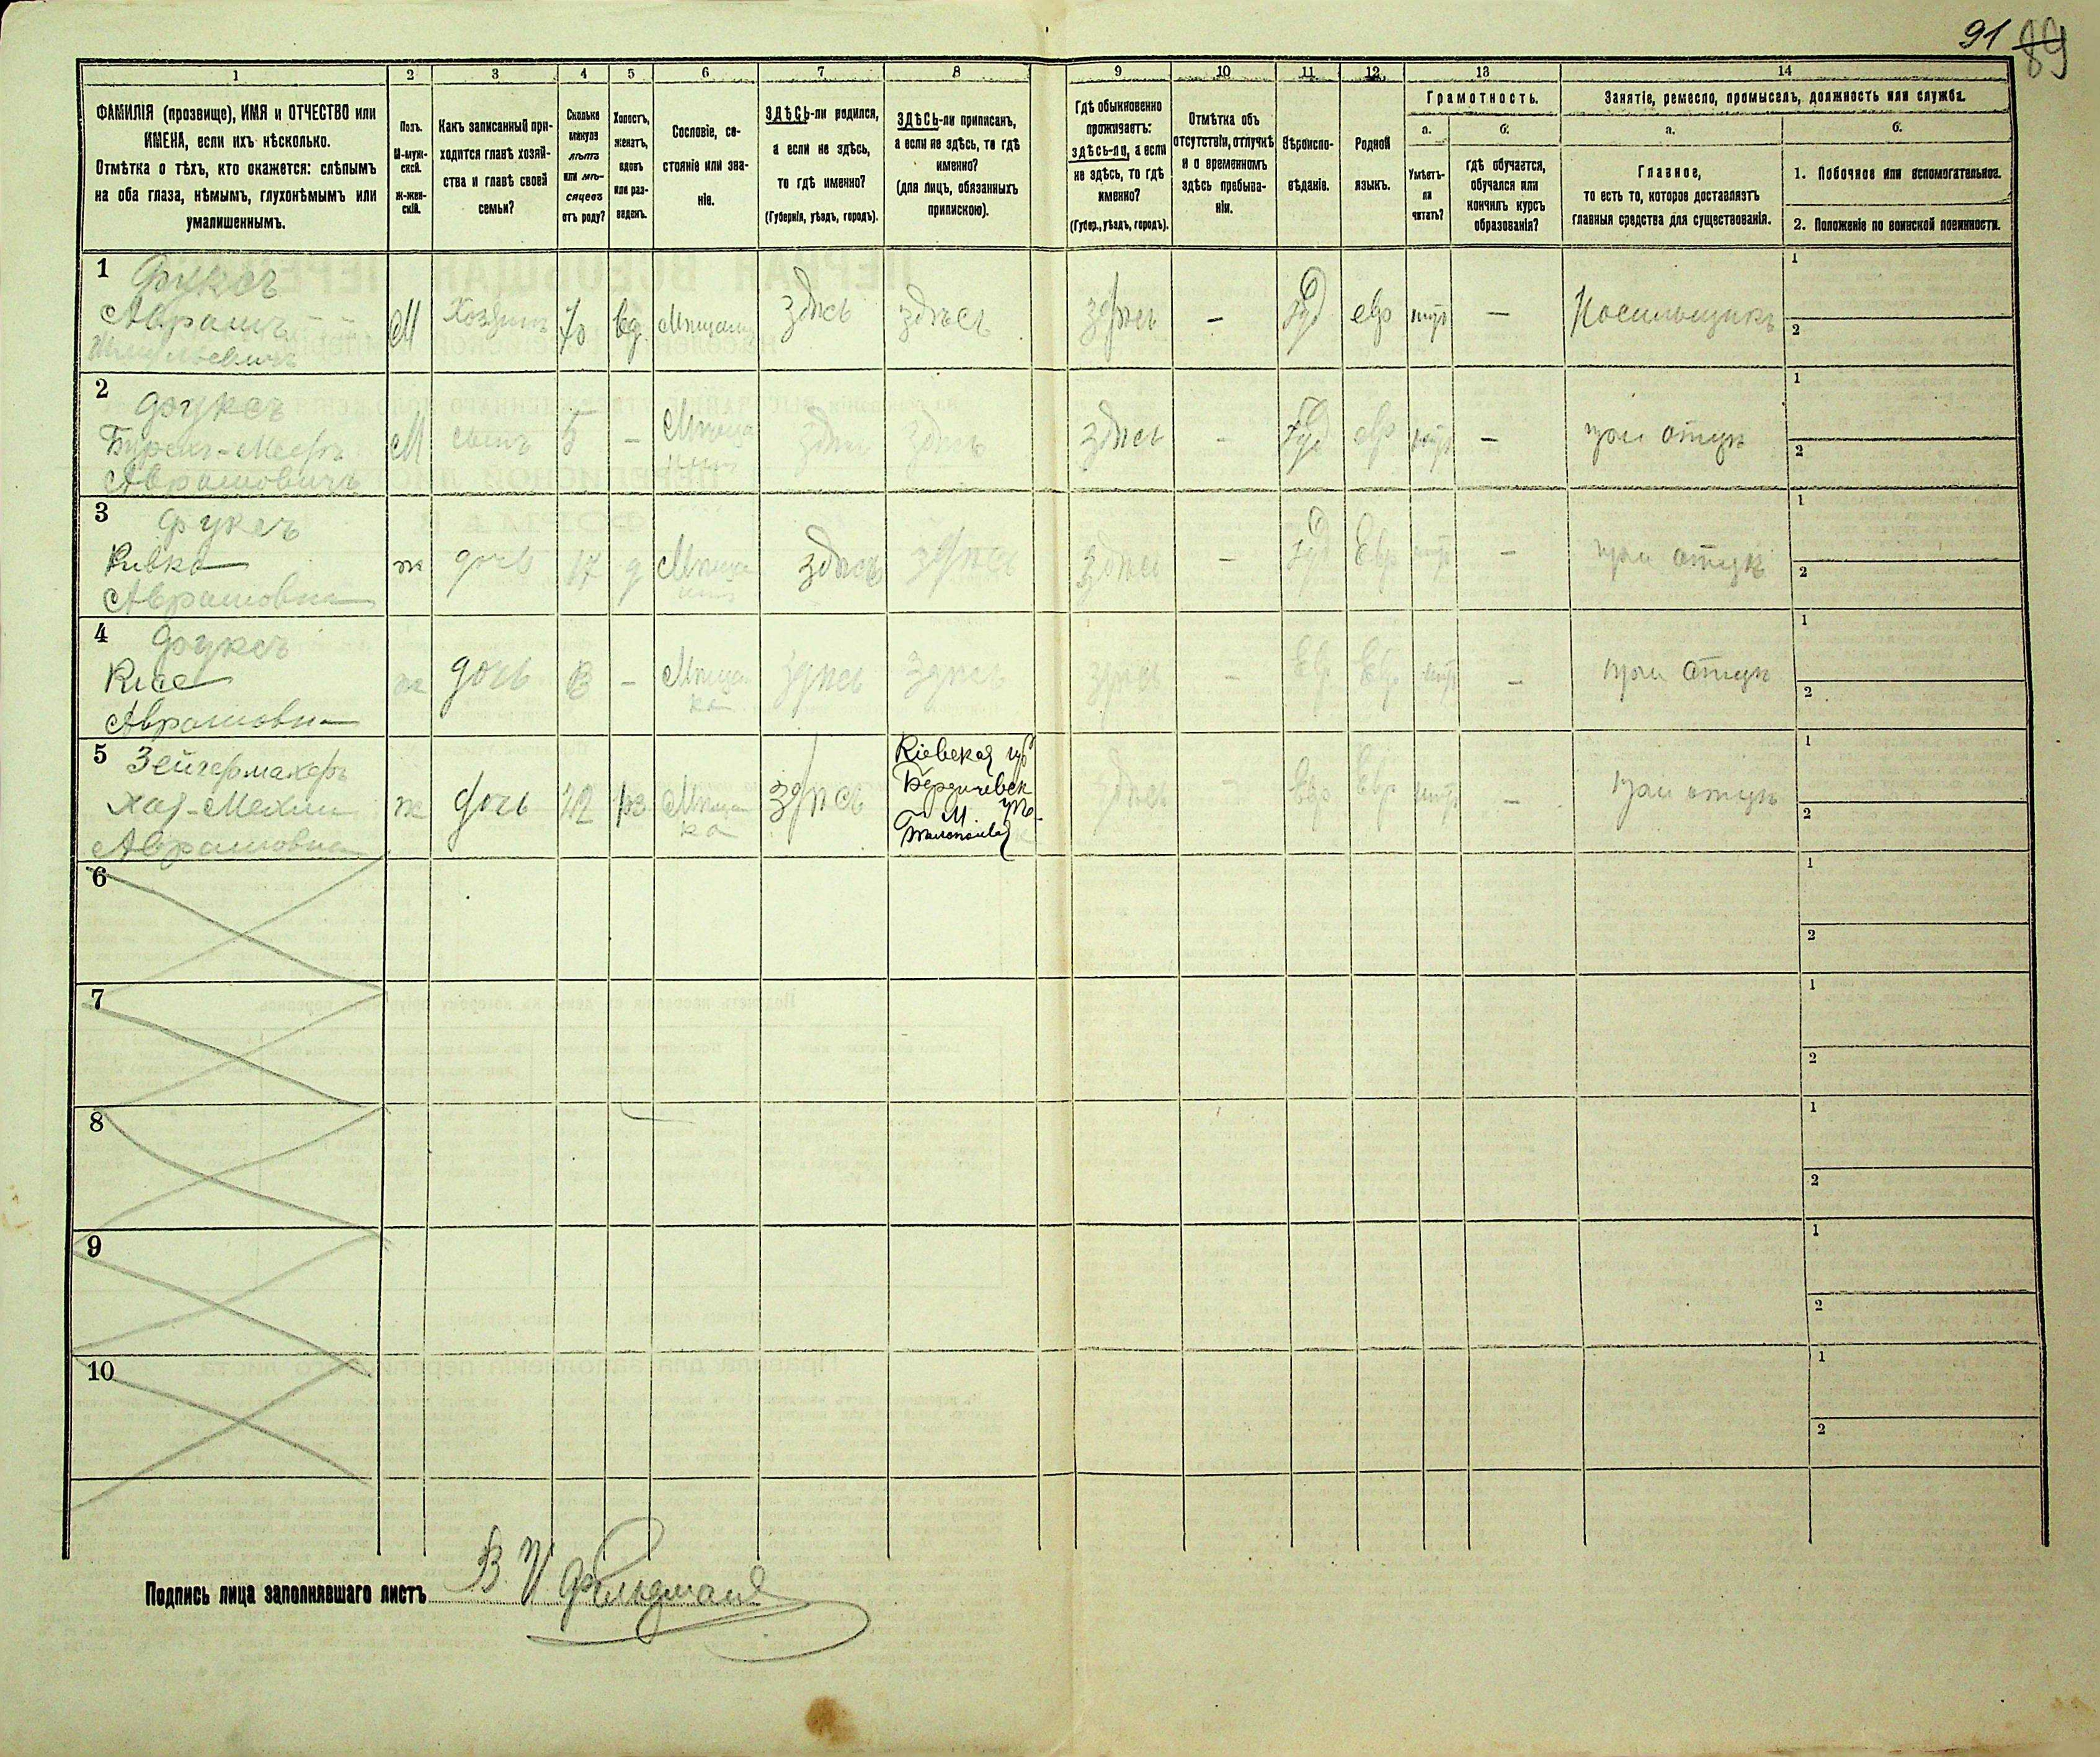 91 89
1 2 3 4 5 6 7 8 9 10 11 12 13 14
ФАМИЛІЯ (прозвище), ИМЯ и ОТЧЕСТВО или
ИМЕНА, если ихъ нѣсколько.
Отмѣтка о тѣхъ, кто окажется: слѣпымъ
на оба глаза, нѣмымъ, глухонѣмымъ или
умалишеннымъ.
Полъ.
М-муж-
ской.
Ж-жен-
скій.
Какъ записанный при-
ходится главѣ хозяй-
ства и главѣ своей
семьи?
Сколько
минуло
лѣтъ
или мѣ-
сяцевъ
отъ роду?
Холостъ,
женатъ,
вдовъ
или раз-
веденъ.
Сословіе, со-
стояніе или зва-
ніе.
ЗДѢСЬ-ли родился,
а если не здѣсь,
то гдѣ именно?
(Губернія, уѣздъ, городъ).
ЗДѢСЬ-ли приписанъ,
а если не здѣсь, то гдѣ
именно?
(для лицъ, обязанныхъ
припискою).
Гдѣ обыкновенно
проживаетъ:
здѣсь-ли, а если
не здѣсь, то гдѣ
именно?
(Губер., уѣздъ, городъ).
Отмѣтка объ
отсутствіи, отлучкѣ
и о временномъ
здѣсь пребыва-
ніи.
Вѣроиспо-
вѣданіе.
Родной
языкъ.
Грамотность.
а.
Умѣетъ-
ли
читать?
б.
гдѣ обучается,
обучался или
кончилъ курсъ
образованія?
Занятіе, ремесло, промыселъ, должность или служба.
а.
Главное,
то есть то, которое доставляетъ
главныя средства для существованія.
б.
1. Побочное или вспомогательное.
2. Положеніе по воинской повинности.
1 Фуксъ
Аврамъ
М Хозяинъ 70 вд здѣсь здѣсь здѣсь - евр - Носильщикъ
1
2
2 Фуксъ
Аврамовичъ
М сынъ 5 - здѣсь здѣсь здѣсь - евр - при отцѣ
1
2
3 Фуксъ
Ривка
Аврамовна
ж дочь 17 д здѣсь здѣсь здѣсь - Евр - при отцѣ
1
2
4 Фуксъ
Аврамовна
ж дочь 13 - Мѣщан
ка
здѣсь здѣсь здѣсь - Евр Евр - при отцѣ
1
2
5 Зейгермахеръ
Хая-
Аврамовна
ж дочь Мѣщан
ка
здѣсь
Кіевская губ
Бердичевск
здѣсь - Евр Евр - при отцѣ
1
2
6
1
2
7
1
2
8
1
2
9
1
2
10
1
2
Подпись лица заполнявшаго листъ В. И. Фельдман